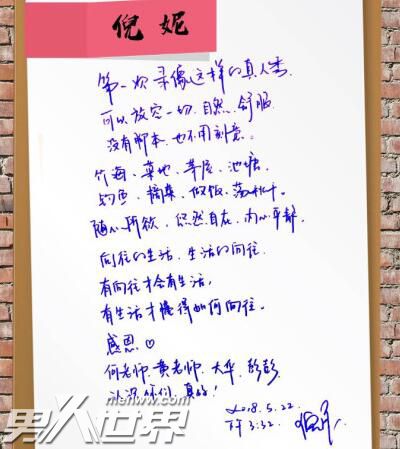 倪妮
第一次录像这样的真人秀
可以放空一切、自然、舒服
没有脚本、也不用刻意。
竹海、菜地、茅屋、池塘
钓鱼、摘菜、做饭、荡秋千。
随心所欲、悠然自在、内心平静
向往的生活、生活的向往
有向往才会有生活，
有生活才懂得如何向往。
感恩♡
何老师、黄老师、大华、彭彭
认识你们、真好！
2018.5.22
下午3:32
男人世界
menww.com